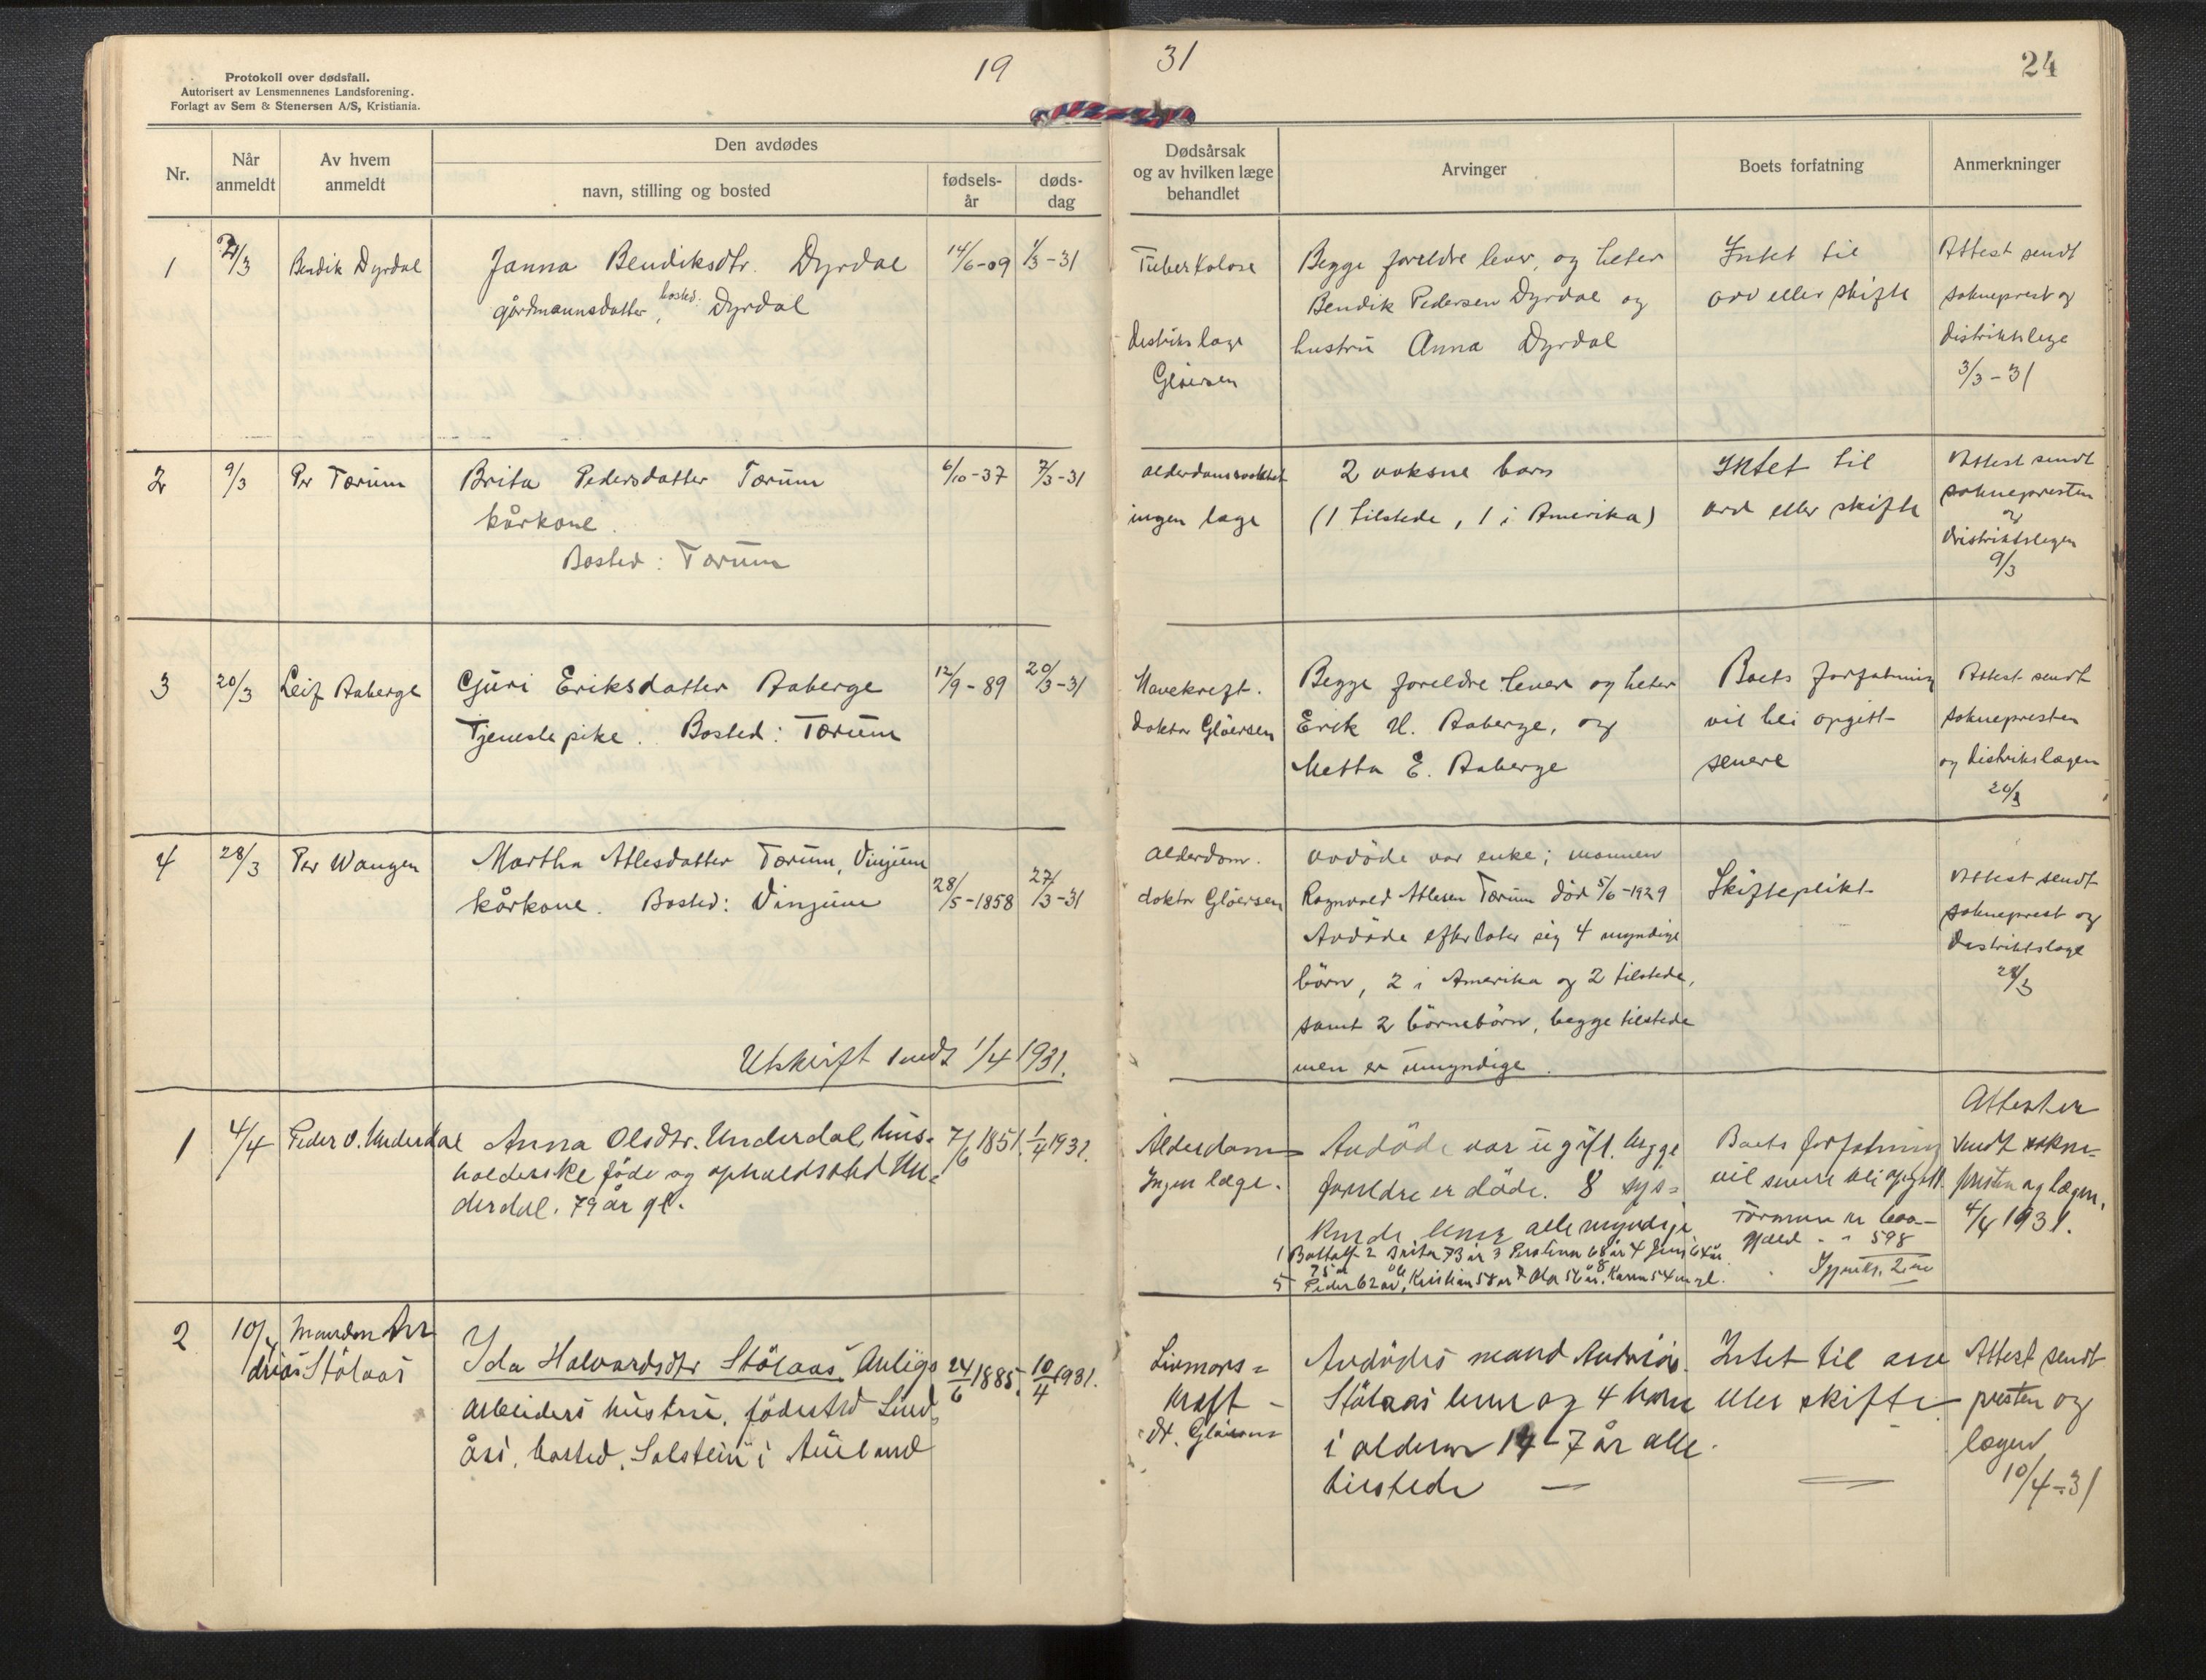 19 31
24
Protokoll over dødsfall.
Autorisert av Lensmennenes Landsforening.
Forlagt av Sem & Stenersen A/S, Kristiania.
Nr.
Når anmeldt
Av hvem anmeldt
Den avdødes
navn, stilling og bosted
fødsels-år
døds-dag
Dødsårsak og av hvilken læge behandlet
Arvinger
Boets forfatning
Anmerkninger
1
/3
Bendik Dyrdal
Janna Bendiksdtr. Dyrdal
gårdmannsdatter, bosted: Dyrdal
14/6-09
1/3-31
Tuberkolose
distrikslæge
Gløersen
Begge foreldre lever, og heter
Bendik Pedersen Dyrdal og
hustru Anna Dyrdal
Intet til
arv eller skifte
Attest sendt
sokneprest og
distriktslege
3/3-31
2
9/3
Per Tærum
Brita Pedersdatter Tærum
kårkone.
Bosted: Tærum
6/10-37
7/3-31
alderdomssvakhet
ingen læge
2 voksne barn
(1 tilstede, 1 i Amerika)
Intet til
arv eller skifte
Attest sendt
soknepresten
og
distriktslegen
9/3
3
20/3
Leif Aaberge
Gjuri Eriksdatter Aaberge
Tjenestepike. Bosted: Tærum
12/9-89
20/3-31
Mavekreft.
doktor Gløersen
Begge foreldre lever og heter
Erik H. Aaberge, og
Metta E. Aaberge
Boets forfatning
vil bli opgitt
senere
Attest sendt
soknepresten
og distrikslægen
20/3
4
28/3
Per Wangen
Martha Atlesdatter Tærum, Vinjum
kårkone. Bosted: Vinjum
28/5-1858
27/3-31
Alderdom.
doktor Gløersen
Avdøde var enke; mannen
Ragnvald Atlesen Tærum død 5/6-1929
Avdøde efterlater sig 4 myndige
børn, 2 i Amerika og 2 tilstede,
samt 2 børnebørn, begge tilstede
men er umyndige.
Skifteplikt
Attest sendt
sokneprest og
distriktslæge
28/3
Utskrift sendt 1/4 1931.
1
4/4
Peder O. Underdal
Anna Olsdtr. Underdal, hus-
holderske føde og opholdssted Un-
derdal. 79 år gl.
7/6 1851.
1/4 1931.
Alderdom
Ingen læge.
Avdøde var ugift. begge
foreldre er døde. 8 sys-
kende lever alle myndige
1 Bottolf 75 år 2 Brita 73 år 3 Perlina 68 år 4 Jens 64 år
5 Peder 62 år, 6 Kristian 58 år 7 Ola 56 år. 8 Karen 54 år gl.
Boets forfatning
vil senere bli opgitt.
Formue kr
Gjeld " " 598
Attester
sendt sokne-
presten og lægen.
4/4 1931.
2
10/4
Manden An-
driås Stølaas
Ida Halvardsdtr Stølaas Anlegs
arbeiders hustru, fødested Lind-
ås, bosted, Solstein i Aurland
24/6 1885.
10/4 1931.
Livmors-
kræft -
dr. Gløersen
Avdødes mand Andriås
Stølaas lever og 4 barn
i alderen 14-7 år alle
tilstede —
Intet til arv
eller skifte
Attest sendt
presten og
lægen
10/4-31